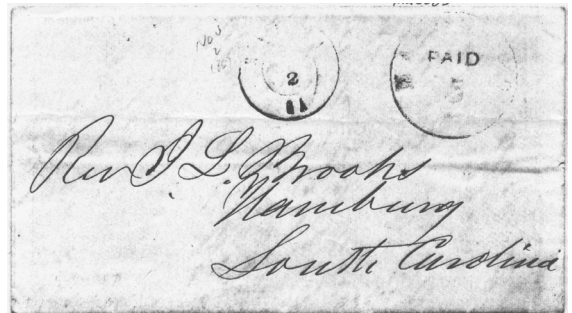 Nov
2
2
PAID
Rev I L. Brooks
Hamburg
South Carolina